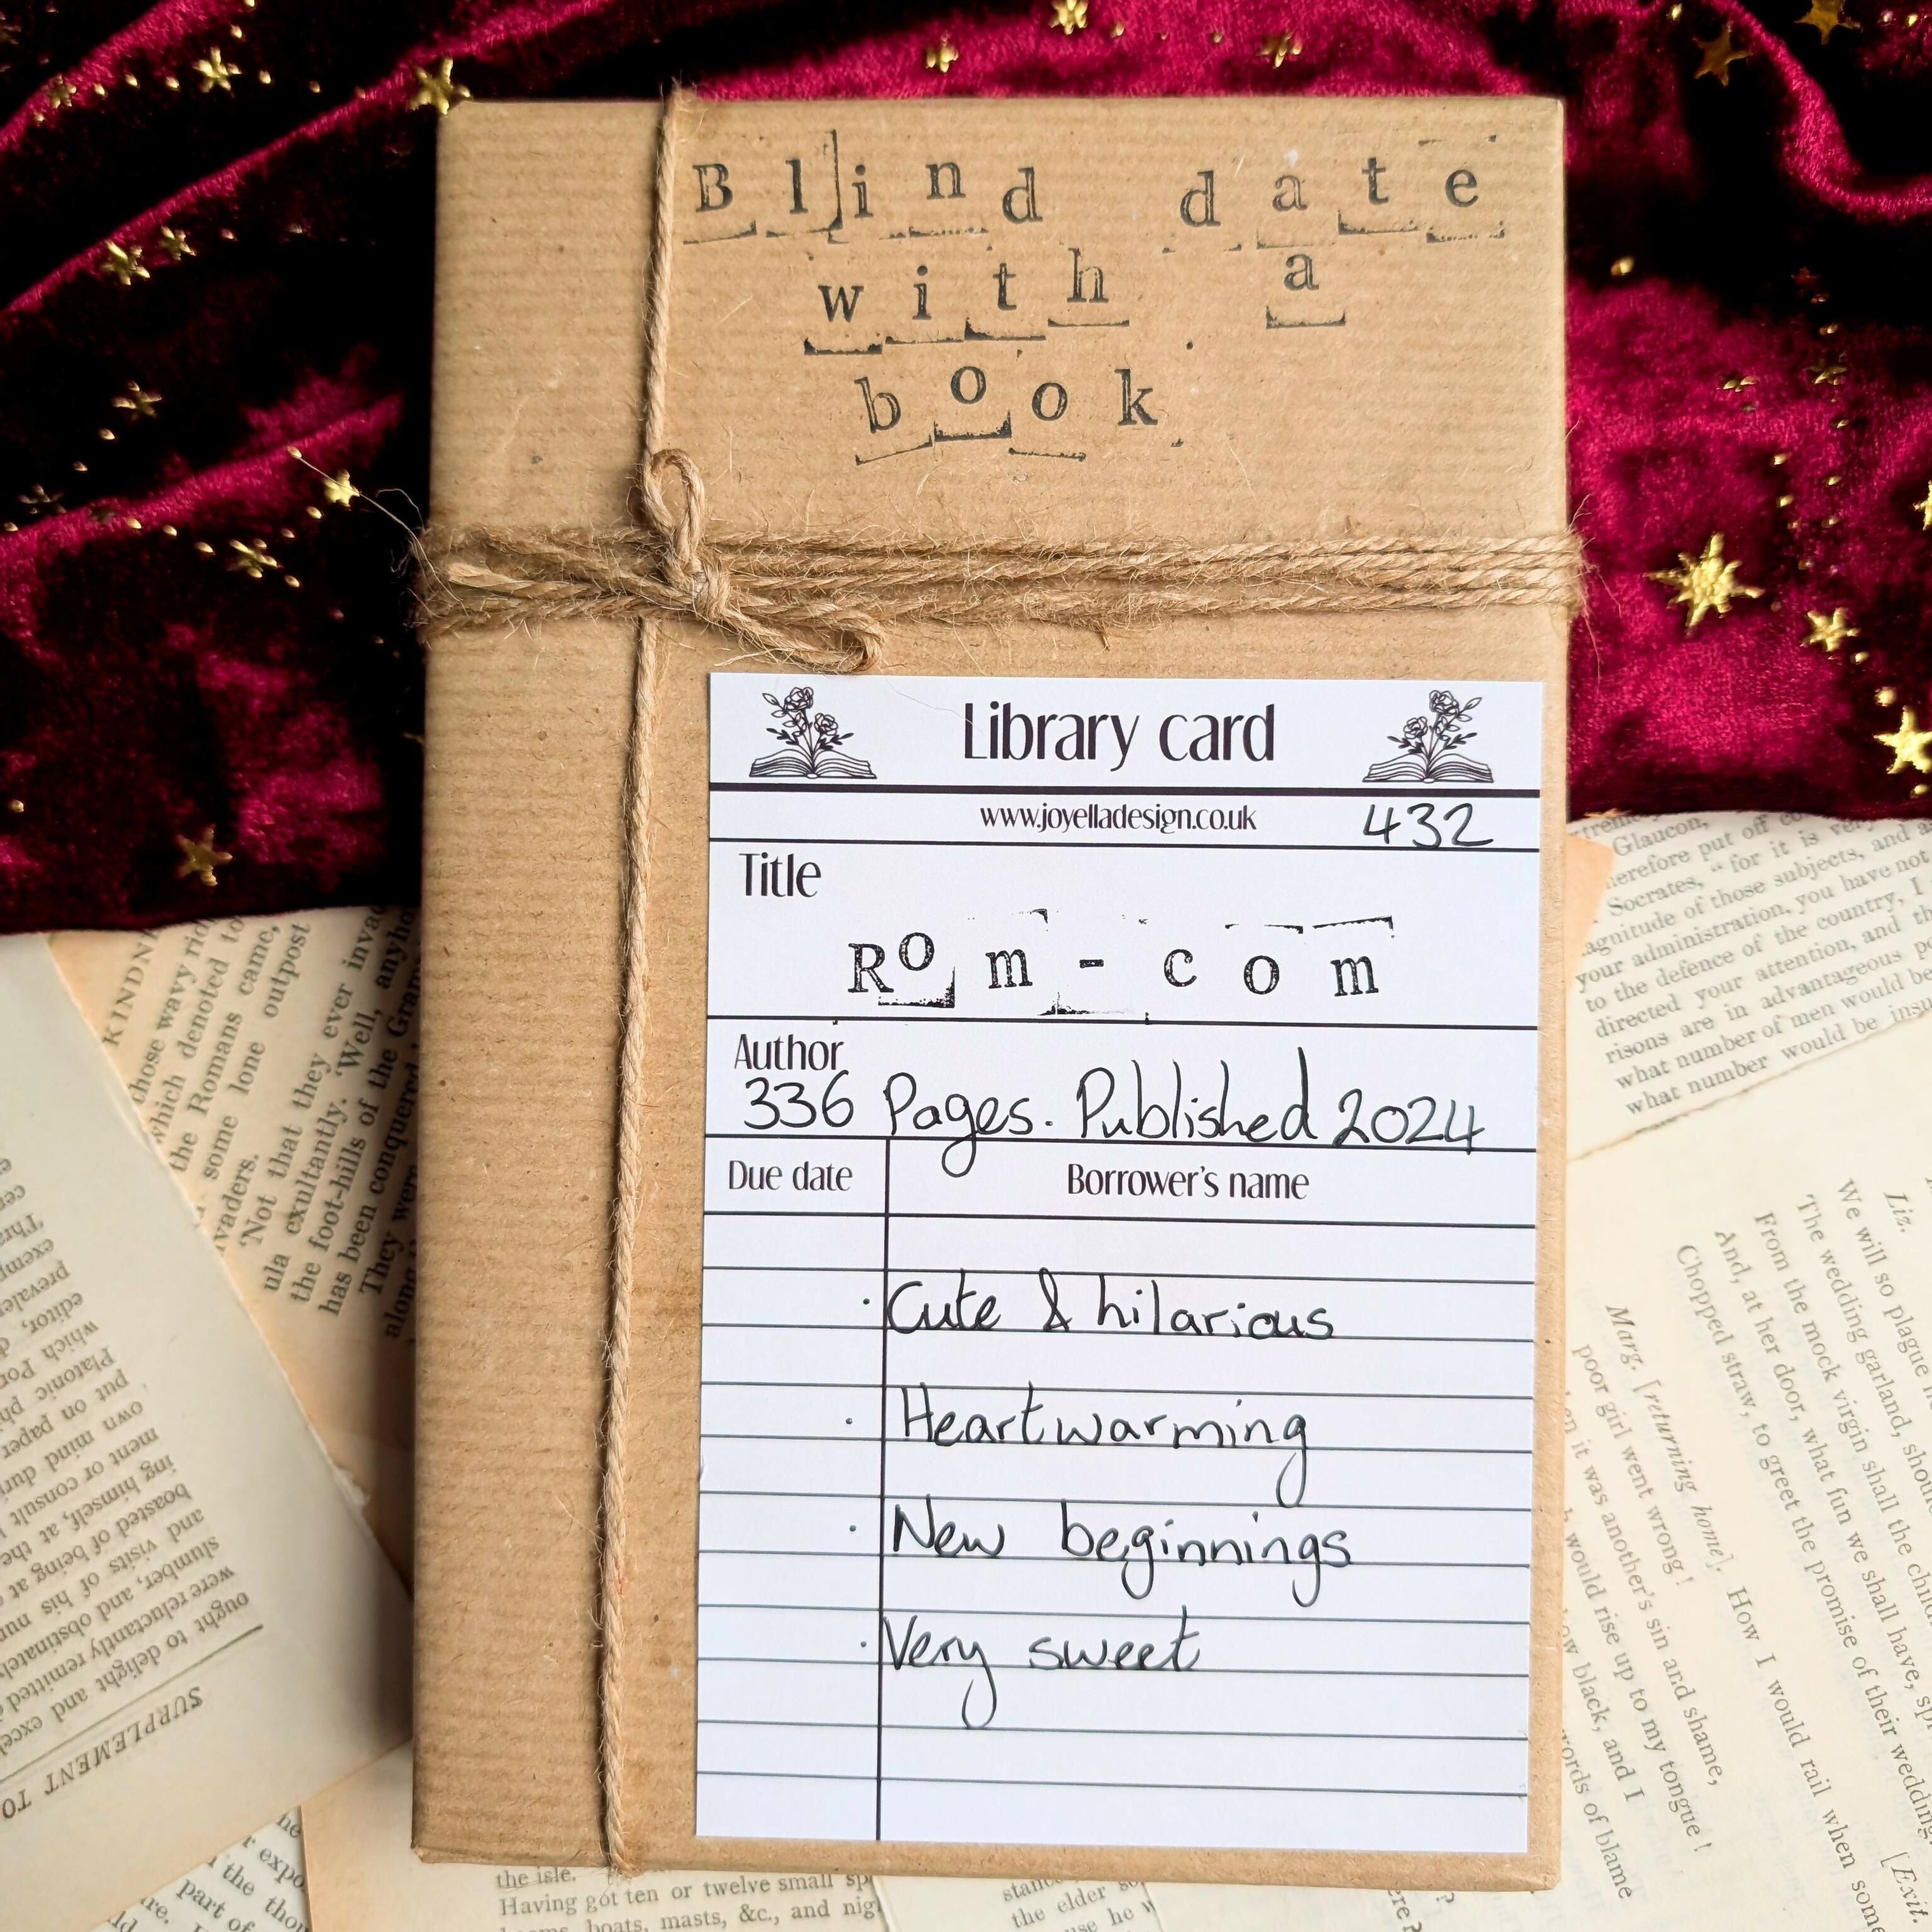 Blind date
with a
book
Library card
www.joyelladesign.co.uk 432
Title
Rom-com
Author
336 Pages. Published 2024
Due date Borrower's name
· Cute & hilarious
· Heartwarming
· New beginnings
· Very sweet
KINDN
those wavy rid
which denoted to
the Romans came,
some lone outpost
vaders.
'Not that they ever invad
ula exultantly. 'Well, anyho
the foot-hills of the Gram
has been conquered
They were
along
SUPPLEMENT TO
ought to delight and excel
slumber, and obstinatel
were reluctantly remitted
and visits of his nu
boasted of being at
ing himself, at the
ment or consult
own mind duri
put on paper
Platonic phi
which Por
editor,
prevale
exemp
the isle.
Having got ten or twelve small sp
boats, masts, &c., and nig
the elder so
Glaucon,
herefore put off
Socrates, "for it is very
agnitude of those subjects, and
your administration, you have not
to the defence of the country, I
directed your attention, and th
risons are in advantageous po
what number of men would be
what number would be insu
Liz.
We will so plague
The wedding garland, shou
From the mock virgin shall the chi
And, at her door, what fun we shall have, sp
Chopped straw, to greet the promise of their wedding
[Exit
Marg. [returning home]. How I would rail when som
poor girl went wrong!
en it was another's sin and shame,
would rise up to my tongue!
ow black, and I
words of blame